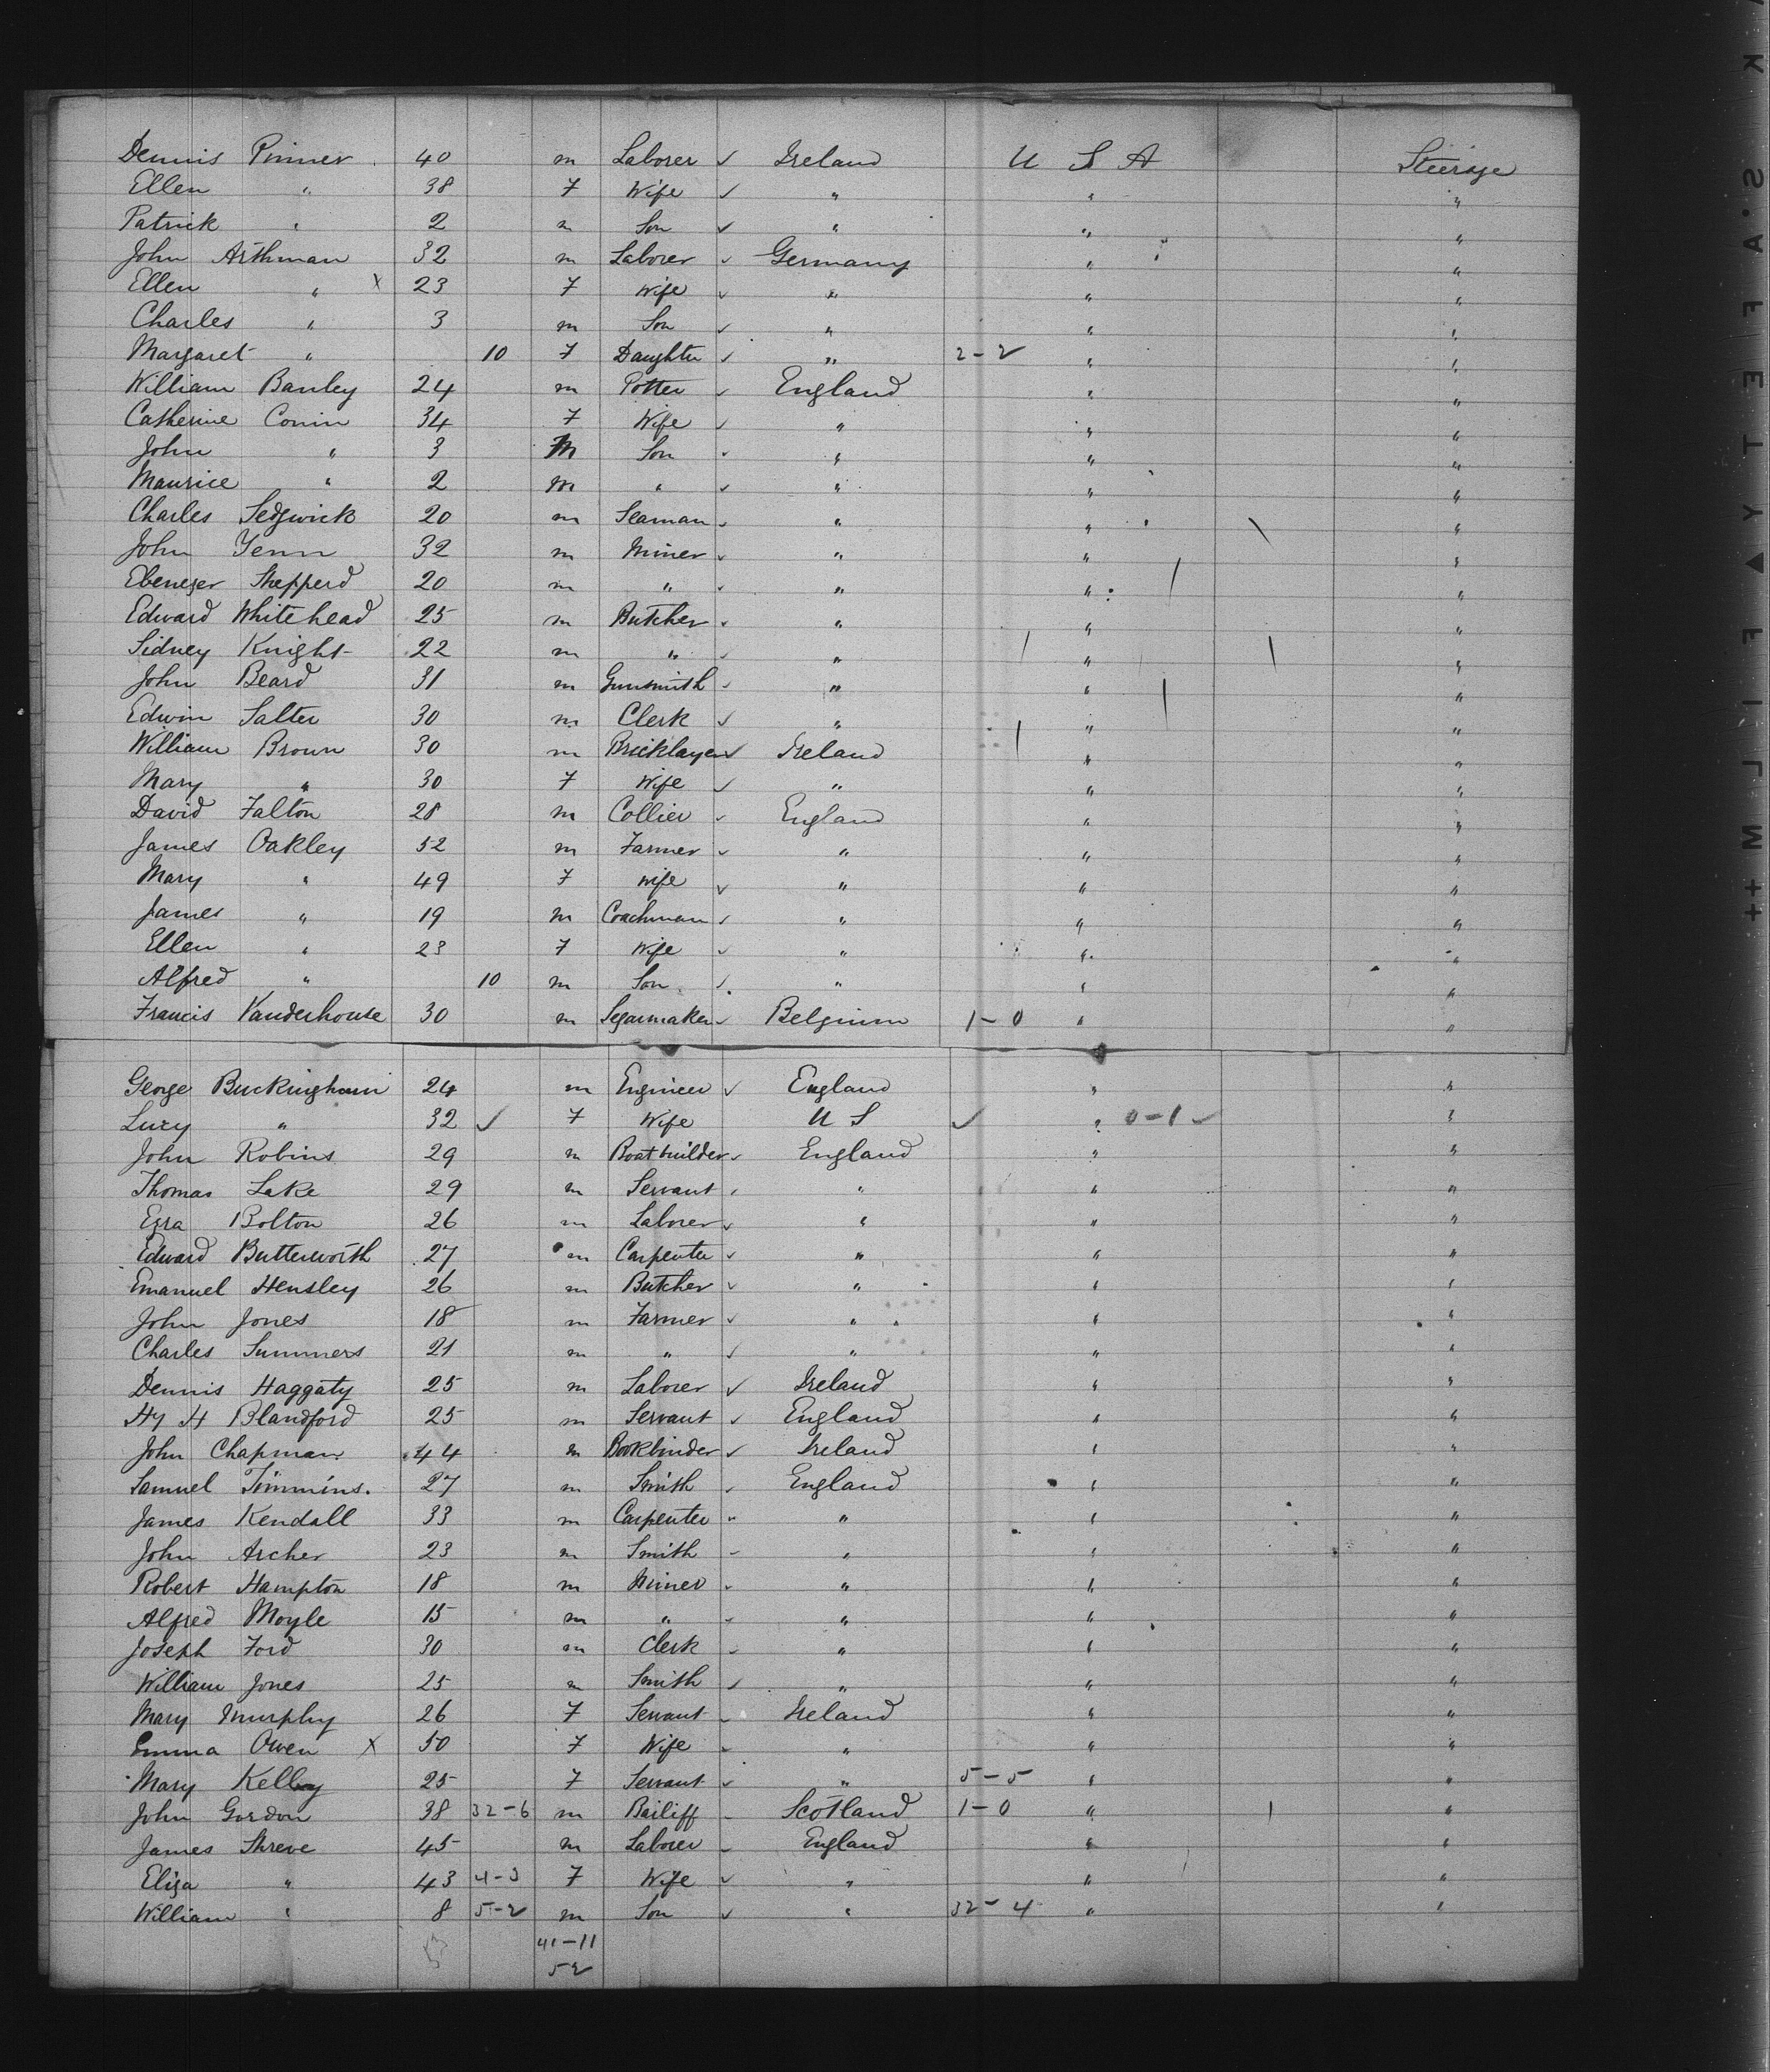 Dennis Pinner 40 m Laborer ✓ Ireland U S A Steerage
Ellen " 38 F Wife ✓ " " "
Patrick " 2 m Son ✓ " " "
John Arthman 32 m Laborer ✓ Germany " "
Ellen " X 23 F Wife ✓ " " "
Charles " 3 m Son ✓ " " "
Margaret " 10 F Daughter ✓ " 2-2 " "
William Banley 24 m Potter ✓ England " "
Catherine Conin 34 F Wife ✓ " " "
John " 3 M Son " " " "
Maurice " 2 m " ✓ " " "
Charles Sedgwick 20 m Seaman ✓ " " "
John Yenn 32 m Miner ✓ " " "
Ebenezer Shepperd 20 m " ✓ " " "
Edward Whitehead 25 m Butcher ✓ " " "
Sidney Knight 22 m " ✓ " " "
John Beard 31 m Gunsmith ✓ " " "
Edwin Salter 30 m Clerk ✓ " " "
William Brown 30 m Bricklayer ✓ Ireland " "
Mary " 30 F Wife ✓ " " "
David Falton 28 m Collier ✓ England " "
James Oakley 52 m Farmer ✓ " " "
Mary " 49 F wife ✓ " " "
James " 19 m Coachman ✓ " " "
Ellen " 23 F Wife ✓ " " "
Alfred " 10 m Son ✓ " " "
Francis Vanderhouse 30 m Segarmaker ✓ Belgium 1-0 " "
George Buckingham 24 m Engineer ✓ England " "
Lucy " 32 ✓ F Wife U S ✓ " 0-1 ✓ "
John Robins 29 m Boatbuilder ✓ England " "
Thomas Lake 29 m Servant ✓ " " "
Ezra Bolton 26 m Laborer ✓ " " "
Edward Butterworth 27 m Carpenter ✓ " " "
Emanuel Hensley 26 m Butcher ✓ " " "
John Jones 18 m Farmer ✓ " " "
Charles Summers 21 m " ✓ " " "
Dennis Haggaty 25 m Laborer ✓ Ireland " "
Hy H Blandford 25 m Servant ✓ England " "
John Chapman 44 m Bookbinder ✓ Ireland " "
Samuel Timmins. 27 m Smith ✓ England " "
James Kendall 33 m Carpenter ✓ " " "
John Archer 23 m Smith ✓ " " "
Robert Hampton 18 m Miner ✓ " " "
Alfred Moyle 15 m " ✓ " " "
Joseph Ford 30 m Clerk ✓ " " "
William Jones 25 m Smith ✓ " " "
Mary Murphy 26 F Servant ✓ Ireland " "
Emma Owen X 50 F Wife ✓ " " "
Mary Kelly 25 F Servant ✓ " 5-5 " "
John Gordon 38 32-6 m Bailiff ✓ Scotland 1-0 " "
James Shreve 45 m Laborer ✓ England " "
Eliza " 43 4-3 F Wife ✓ " " "
William " 8 5-2 m Son ✓ " 32-4 " "
41-11
52